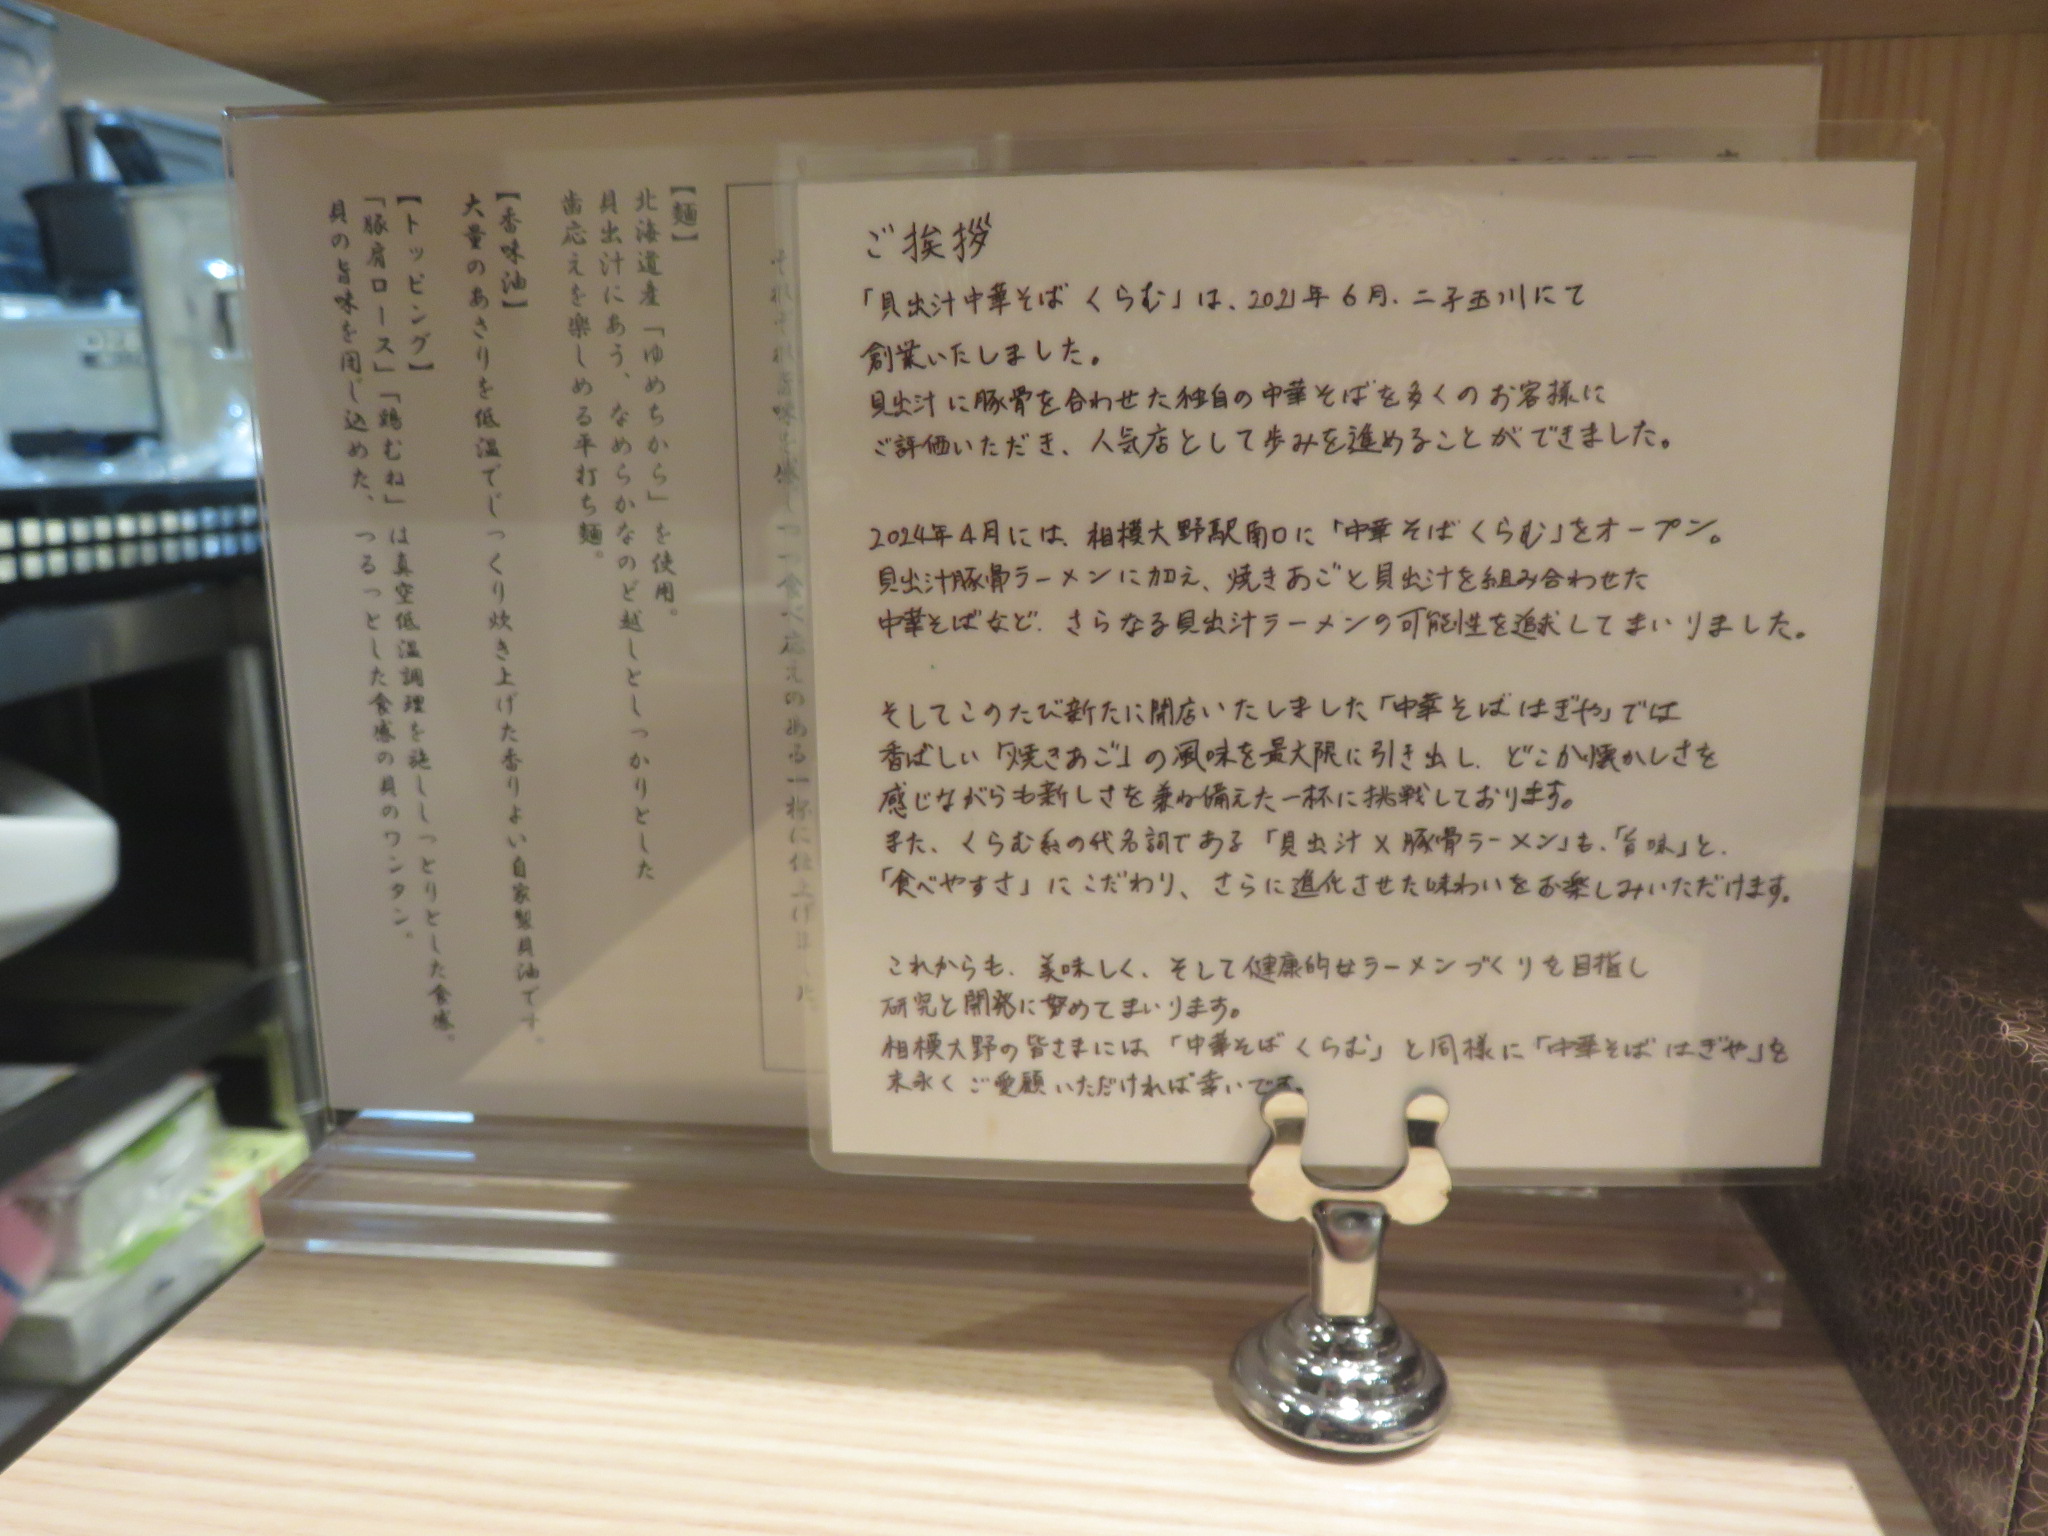 ご挨拶
「貝出汁中華そば くらむ」は、2021年6月、二子玉川にて
創業いたしました。
貝出汁に豚骨を合わせた独自の中華そばを多くのお客様に
ご評価いただき、人気店として歩みを進めることができました。
2024年4月には、相模大野駅南口に「中華そば くらむ」をオープン。
貝出汁豚骨ラーメンに加え、焼きあごと貝出汁を組み合わせた
中華そばなど、さらなる貝出汁ラーメンの可能性を追求してまいりました。
そしてこのたび新たに開店いたしました「中華そば はぎや」では
香ばしい「焼きあご」の風味を最大限に引き出し、どこか懐かしさを
感じながらも新しさを兼ね備えた一杯に挑戦しております。
また、くらむ系の代名詞である「貝出汁×豚骨ラーメン」も、「旨味」と、
「食べやすさ」にこだわり、さらに進化させた味わいをお楽しみいただけます。
これからも、美味しく、そして健康的なラーメンづくりを目指し
研究と開発に努めてまいります。
相模大野の皆さまには、「中華そば くらむ」と同様に「中華そば はぎや」を
末永くご愛顧いただければ幸いです。
それぞれ旨味を 食べ応えのある一杯に仕上げました。
【麺】
北海道産「ゆめちから」を使用。
貝出汁にあう、なめらかなのど越しとしっかりとした
歯応えを楽しめる平打ち麺。
【香味油】
大量のあさりを低温でじっくり炊き上げた香りよい自家製貝油です。
【トッピング】
「豚肩ロース」「鶏むね」は真空低温調理を施ししっとりとした食感。
貝の旨味を閉じ込めた、つるっとした食感の貝のワンタン。